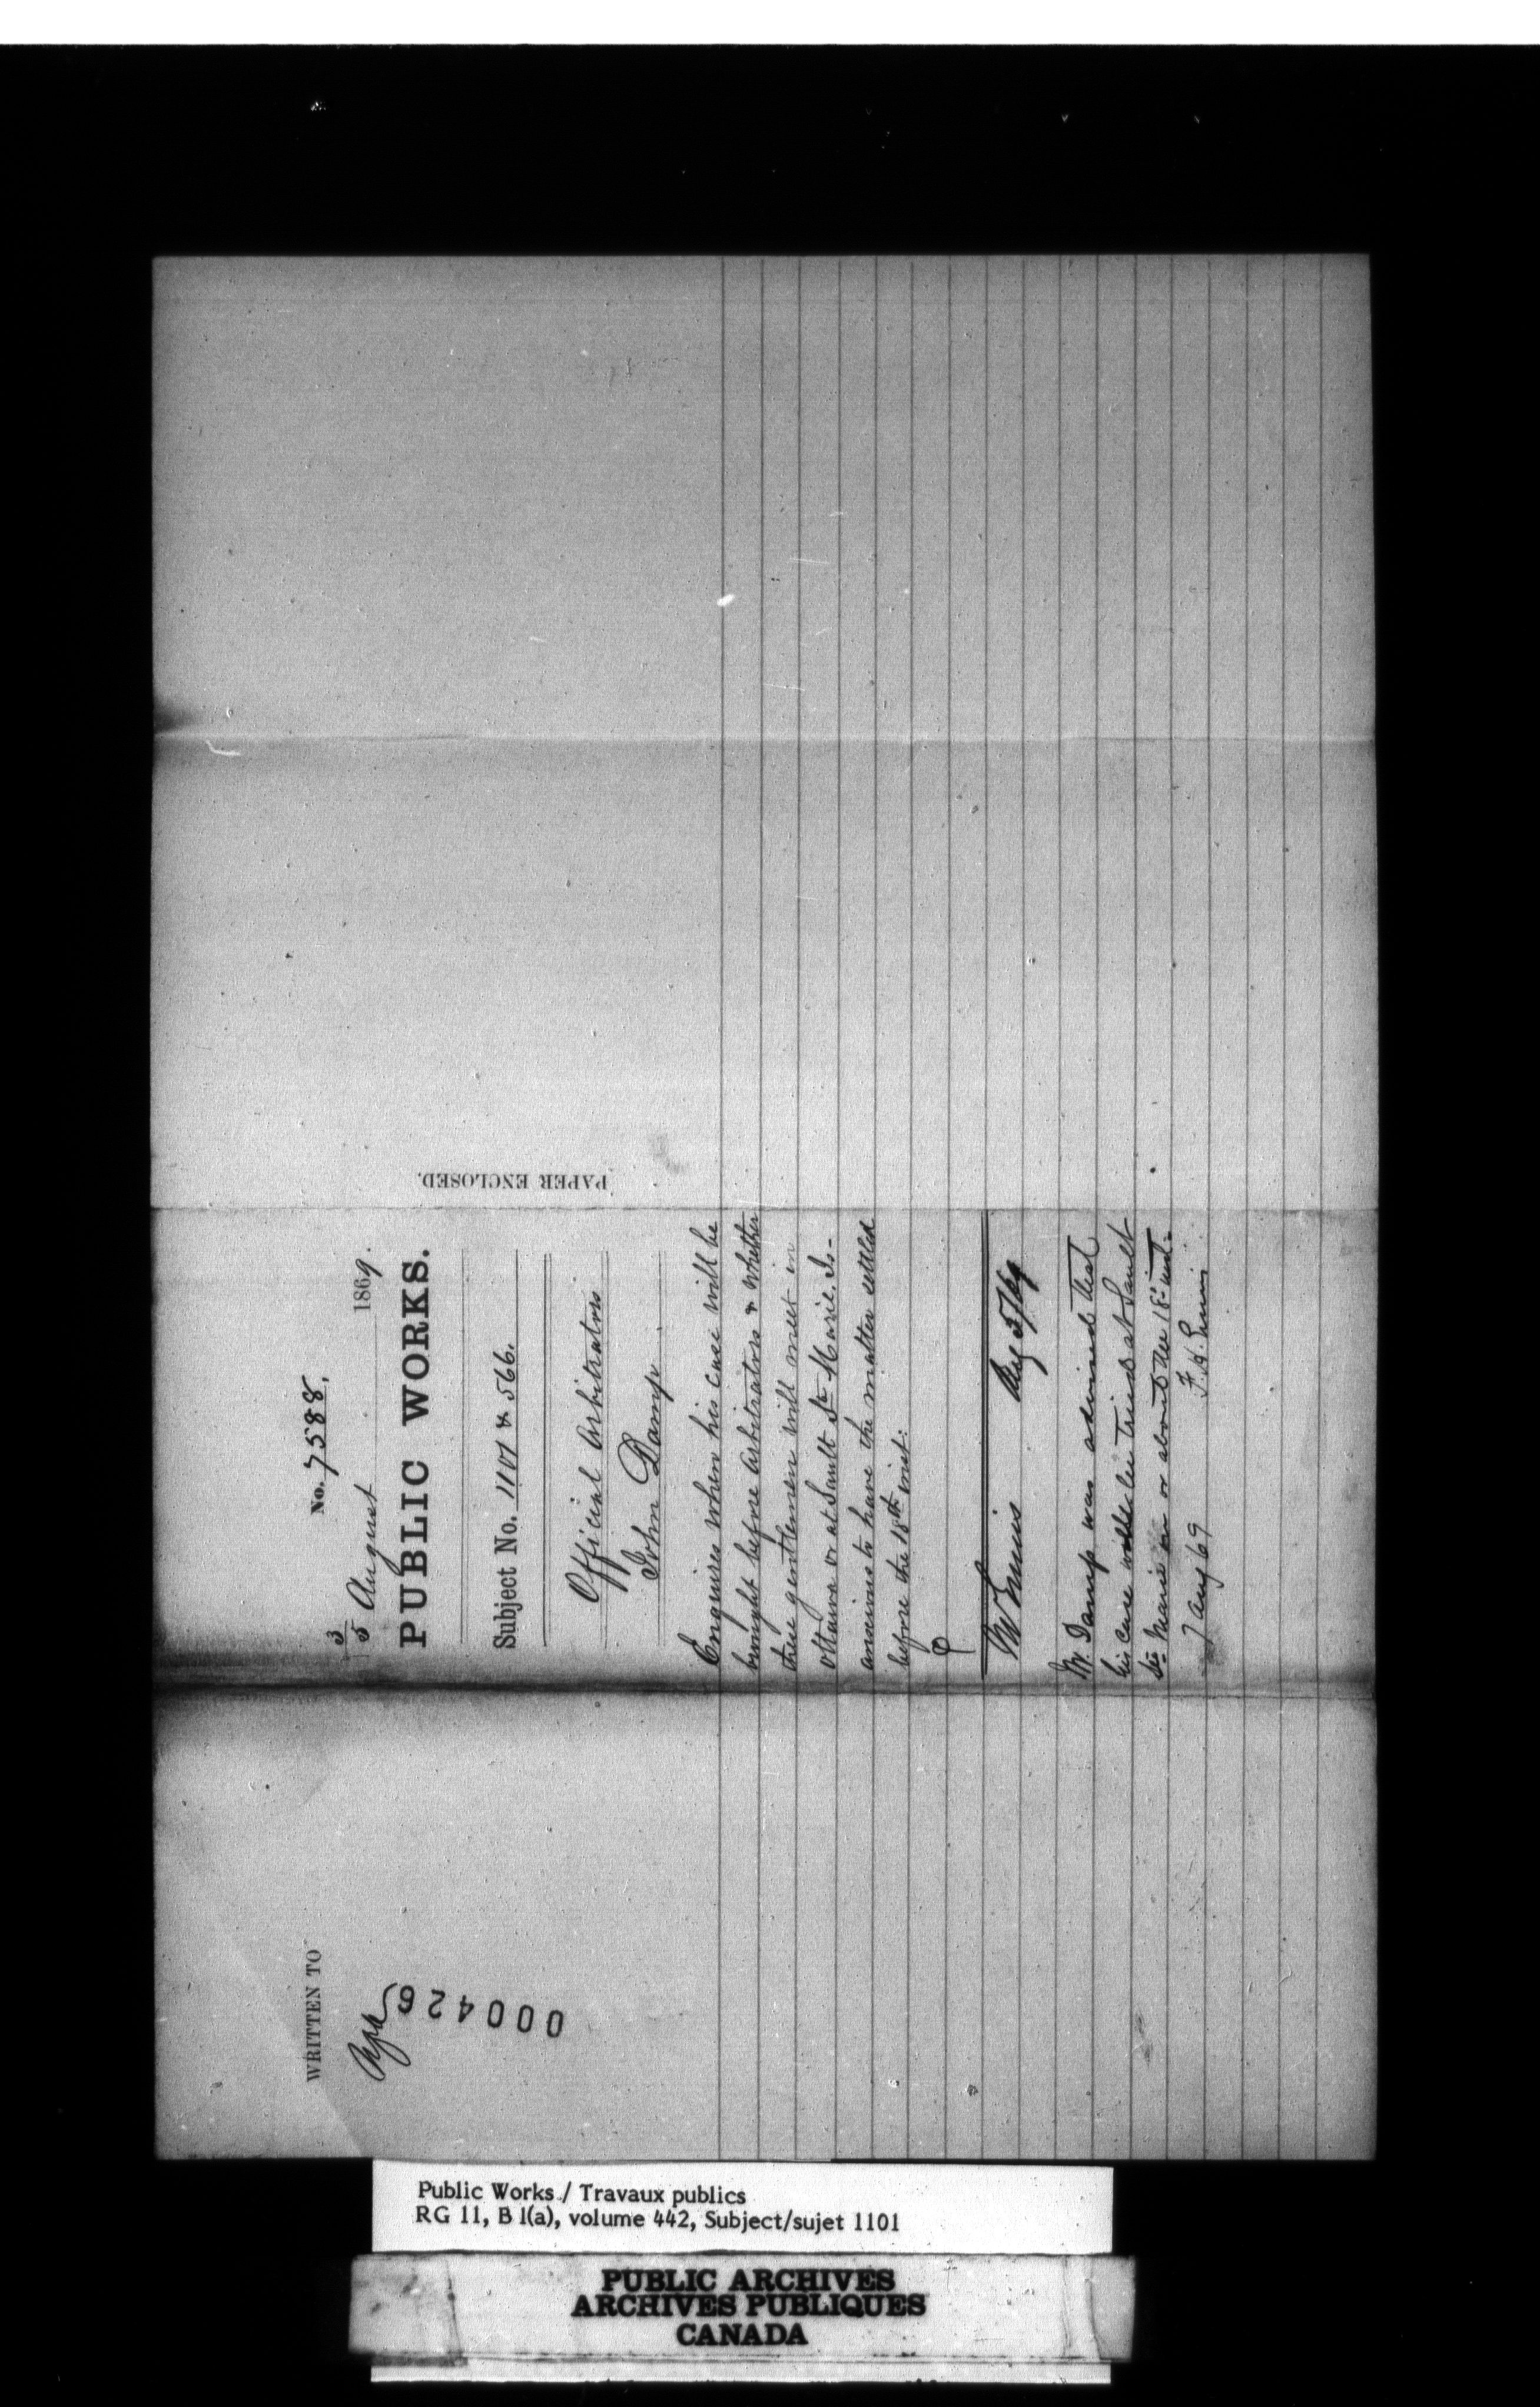 No. 7588.
3/5 August 1869.
PUBLIC WORKS.
Subject No. 1101 & 566.
Official Arbitrators
John Damp
Enquires when his case will be
brought before Arbitrators & whether
these gentlemen will meet in
Ottawa or at Sault Ste Marie. Is
anxious to have the matter settled
before the 18th inst:
Aug 5/69
Mr. Damp was advised that
his case will be tried at Sault
Ste Marie on or about the 18th inst.
7 Aug 69
PAPER ENCLOSED.
WRITTEN TO
000426
Public Works / Travaux publics
RG 11, B 1(a), volume 442, Subject/sujet 1101
PUBLIC ARCHIVES
ARCHIVES PUBLIQUES
CANADA